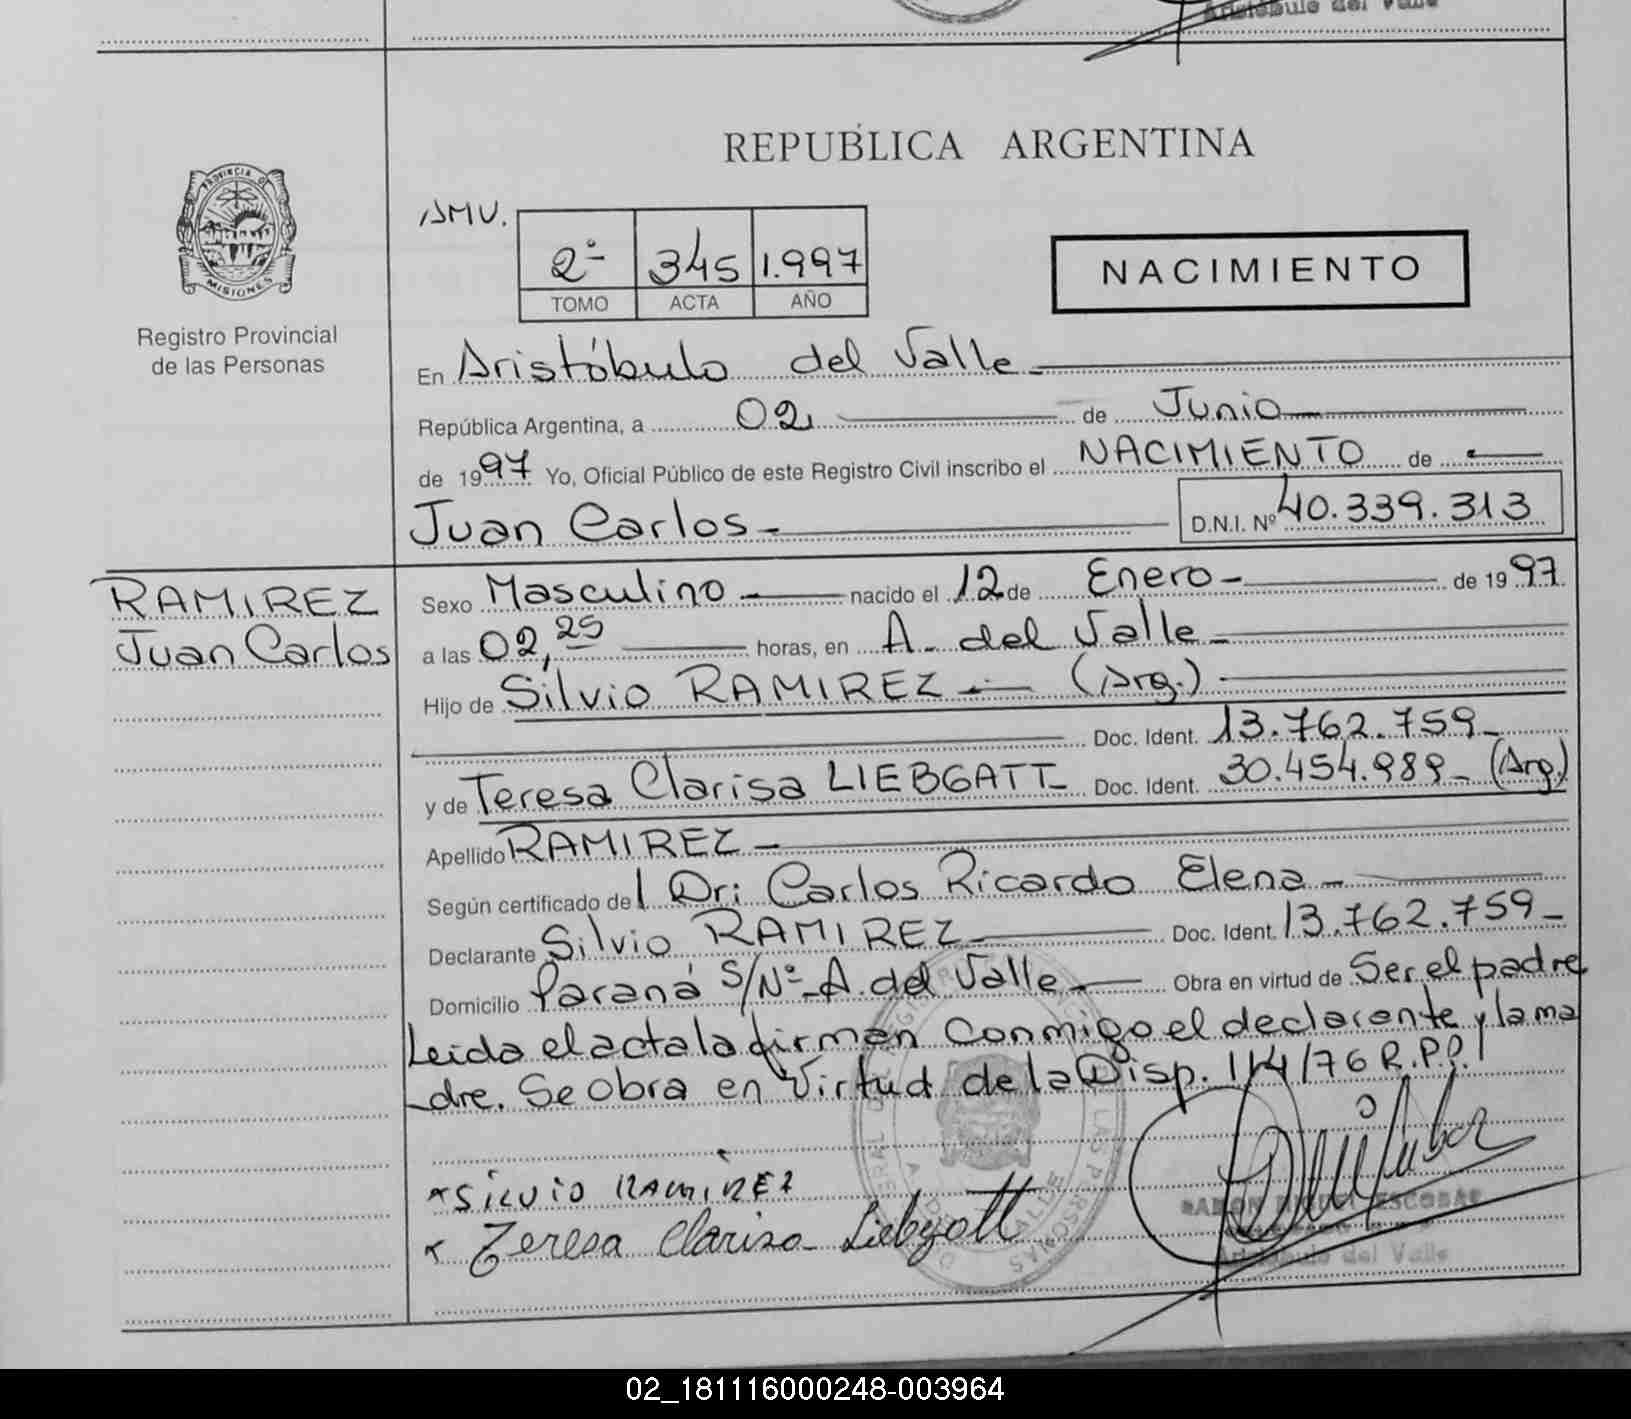 Aristóbulo del Valle
REPUBLICA ARGENTINA
PROVINCIA D
MISIONES
Registro Provincial
de las Personas
AMV.
2º 345 1.997
TOMO ACTA AÑO
NACIMIENTO
En Aristóbulo del Valle
República Argentina, a 02 de Junio
de 1997 Yo, Oficial Público de este Registro Civil inscribo el NACIMIENTO de
Juan Carlos D.N.I. Nº 40.339.313
RAMIREZ
Juan Carlos
Sexo Masculino nacido el 12 de Enero de 1997
a las 02,25 horas, en A. del Valle
Hijo de Silvio RAMIREZ (Arg.)
Doc. Ident. 13.762.759
y de Teresa Clarisa LIEBGATT Doc. Ident. 30.454.989 (Arg.)
Apellido RAMIREZ
Según certificado de l Dr: Carlos Ricardo Elena
Declarante Silvio RAMIREZ Doc. Ident. 13.762.759
Domicilio Paraná S/Nº A. del Valle Obra en virtud de Ser el padre
Leída el acta la firman Conmigo el declarante y la ma
dre. Se Obra en Virtud de la Disp. 114/76 R.P.P.
SILVIO RAMIREZ
Teresa Clarisa Liebgott
RAMON MIGUEL ESCOBAR
Aristóbulo del Valle
02_181116000248-003964